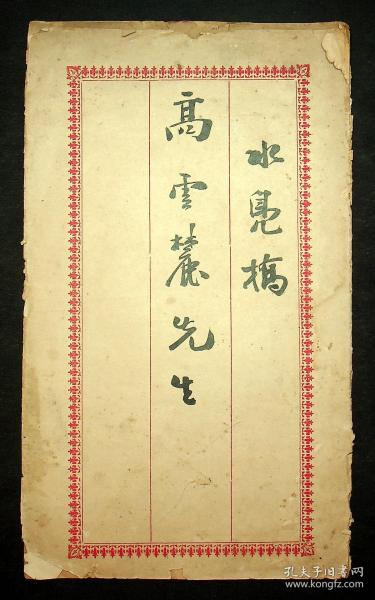 水鳧橋
高雲麓先生
孔夫子旧书网
www.kongfz.com